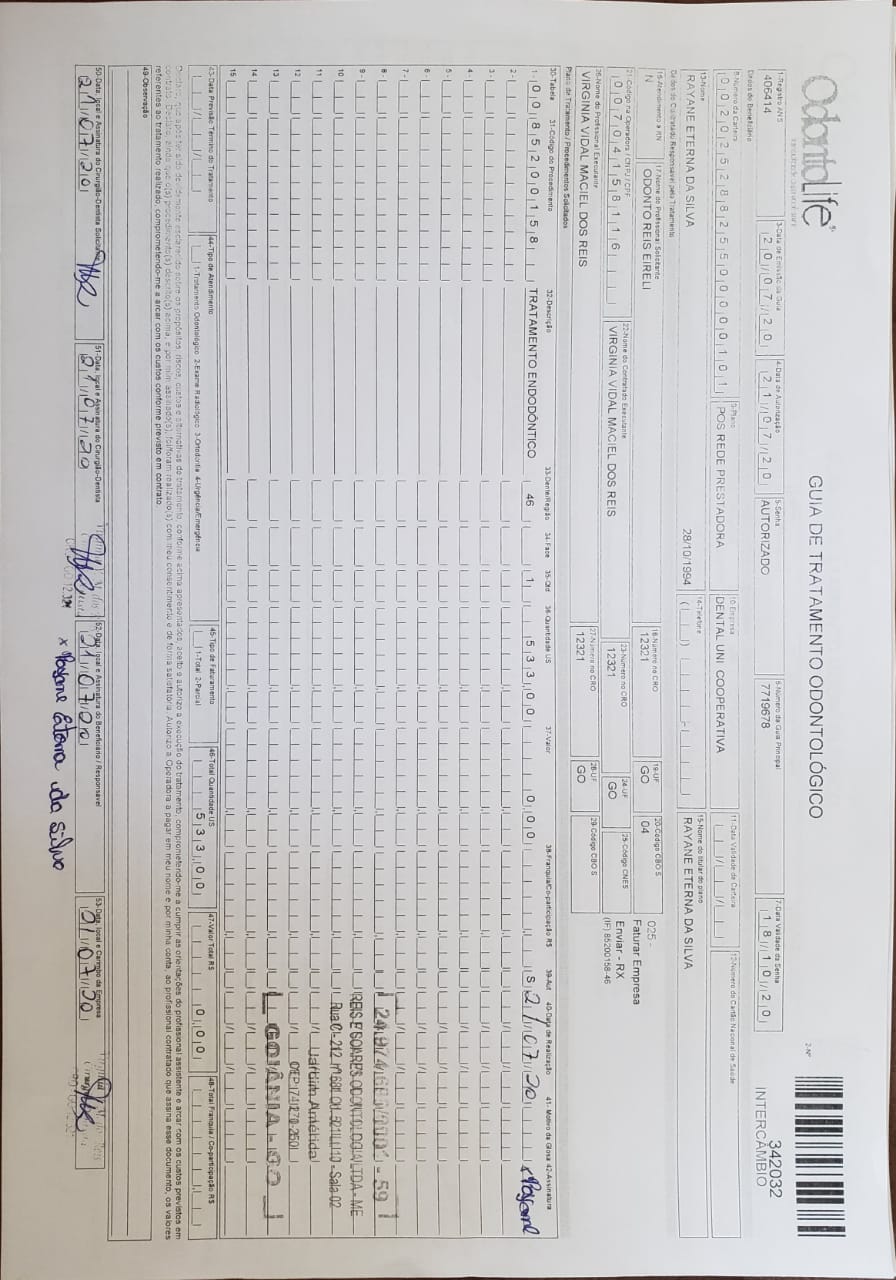 OdontoLife
GUIA DE TRATAMENTO ODONTOLÓGICO
2-Nº
342032
INTERCÂMBIO
1-Registro ANS
406414
3-Data de Emissão da Guia
20/07/20
4-Data de Autorização
21/07/20
5-Senha
AUTORIZADO
6-Número da Guia Principal
7719678
7-Data Validade da Senha
18/10/20
Dados do Beneficiário
8-Número da Carteira
00202528825500000101
9-Plano
POS REDE PRESTADORA
10-Empresa
DENTAL UNI COOPERATIVA
11-Data Validade da Carteira
12-Número do Cartão Nacional de Saúde
13-Nome
RAYANE ETERNA DA SILVA
28/10/1994
14-Telefone
15-Nome do titular do plano
RAYANE ETERNA DA SILVA
Dados do Contratado Responsável pelo Tratamento
16-Atendimento a RN
N
17-Nome do Profissional Solicitante
ODONTO REIS EIRELI
18-Número no CRO
12321
19-UF
GO
20-Código CBO S
04
025 -
Faturar Empresa
21-Código na Operadora / CNPJ / CPF
00704158116
22-Nome do Contratado Executante
VIRGINIA VIDAL MACIEL DOS REIS
23-Número no CRO
12321
24-UF
GO
25-Código CNES
Enviar - RX
(IF) 85200158-46
26-Nome do Profissional Executante
VIRGINIA VIDAL MACIEL DOS REIS
27-Número no CRO
12321
28-UF
GO
29-Código CBO S
Plano de Tratamento / Procedimentos Solicitados
30-Tabela 31-Código do Procedimento 32-Descrição 33-Dente/Região 34-Face 35-Qtd 36-Quantidade US 37-Valor 38-Franquia/Co-participação R$ 39-Aut 40-Data de Realização 41- Motivo da Glosa 42-Assinatura
1- 00 85200158 TRATAMENTO ENDODÔNTICO 46 1 533,00 0,00 S 21/07/20 x
2-
3-
4-
5-
6-
7-
8-
9-
10
11
12
13
14
15
REIS E SOARES ODONTOLOGIA LTDA - ME
Rua C-212 Nº 681 Qd. 521 Lt. 10 - Sala 02
Jardim América
CEP 74.270-250
GOIÂNIA - GO
43-Data Previsão Término do Tratamento
44-Tipo de Atendimento
1-Tratamento Odontológico 2-Exame Radiológico 3-Ortodontia 4-Urgência/Emergência
45-Tipo de Faturamento
1-Total 2-Parcial
46-Total Quantidade US
533,00
47-Valor Total R$
0,00
48-Total Franquia / Co-participação R$
referentes ao tratamento realizado, comprometendo-me a arcar com os custos conforme previsto em contrato
49-Observação
50-Data, local e Assinatura do Cirurgião-Dentista Solicitante
21/07/20
51-Data, local e Assinatura do Cirurgião-Dentista
21/07/20
52-Data, local e Assinatura do Beneficiário / Responsável
21/07/20
x Rayane Eterna da Silva
53-Data, local e Carimbo da Empresa
21/07/20